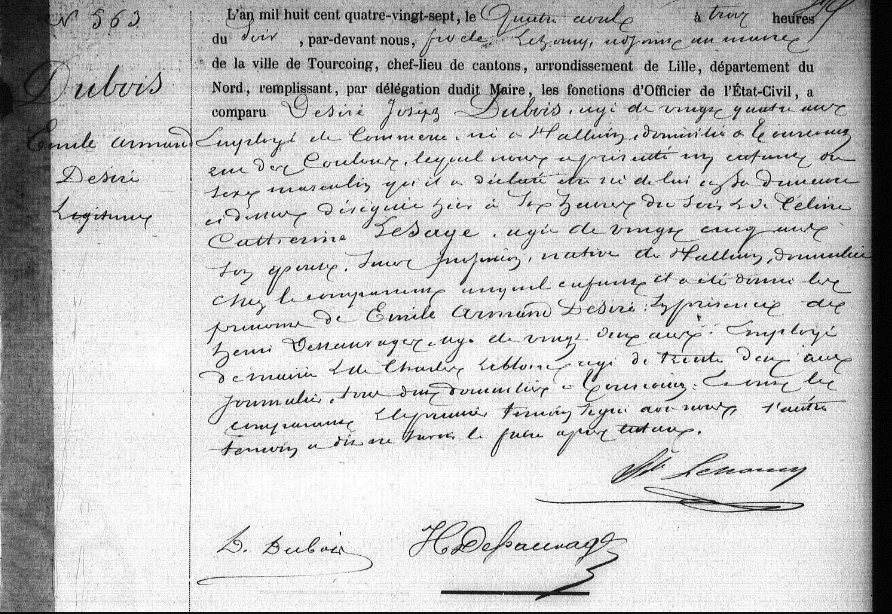 N° 563
Dubois
Emile Armand
Désiré
Légitime
L'an mil huit cent quatre-vingt-sept, le Quatre août à trois heures
du soir, par-devant nous, adjoint au maire
de la ville de Tourcoing, chef-lieu de cantons, arrondissement de Lille, département du
Nord, remplissant, par délégation dudit Maire, les fonctions d'Officier de l'État-Civil, a
comparu Désiré Joseph Dubois, agé de vingt quatre ans
Employé de Commerce, né à Halluin, domicilié à Tourcoing
rue des lequel nous a présenté un enfant du
sexe masculin qu'il a déclaré être né de lui en sa demeure
ci dessus désignée hier à six heures du soir & de Céline
Catherine Lesage, agée de vingt cinq ans
son épouse, sans profession, native de Halluin, domiciliée
chez le comparant auquel enfant il a été donné les
prénoms de Emile Armand Désiré: En présence de
Henri Dessauvages agé de vingt deux ans: Employé
de mairie & de Charles Leblois agé de trente deux ans
Journalier, tous deux domiciliés à Tourcoing: Et ont les
comparant & le premier témoin signé avec nous l'autre
témoin a dit ne savoir le faire après lecture.
D. Dubois
H Dessauvages